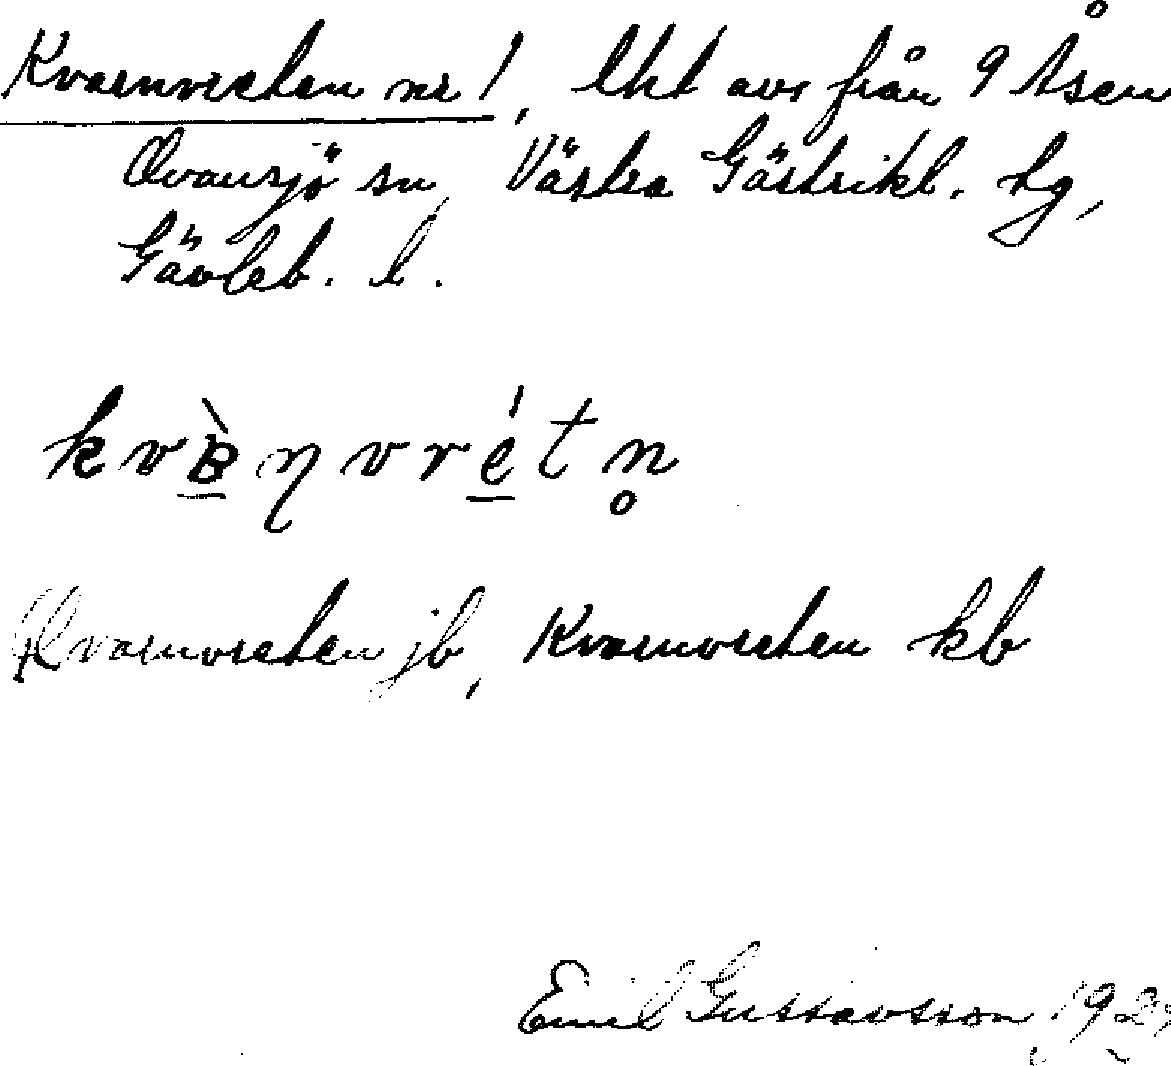 Kvarnvreten nr 1, lht avs från 9 Åsen
Ovansjö sn, Västra Gästrikl. tg,
Gävleb. l.
kvʙ̀ŋvrétn̥
Qvarnvreten jb, Kvarnvreten kb
Emil Gustavsson